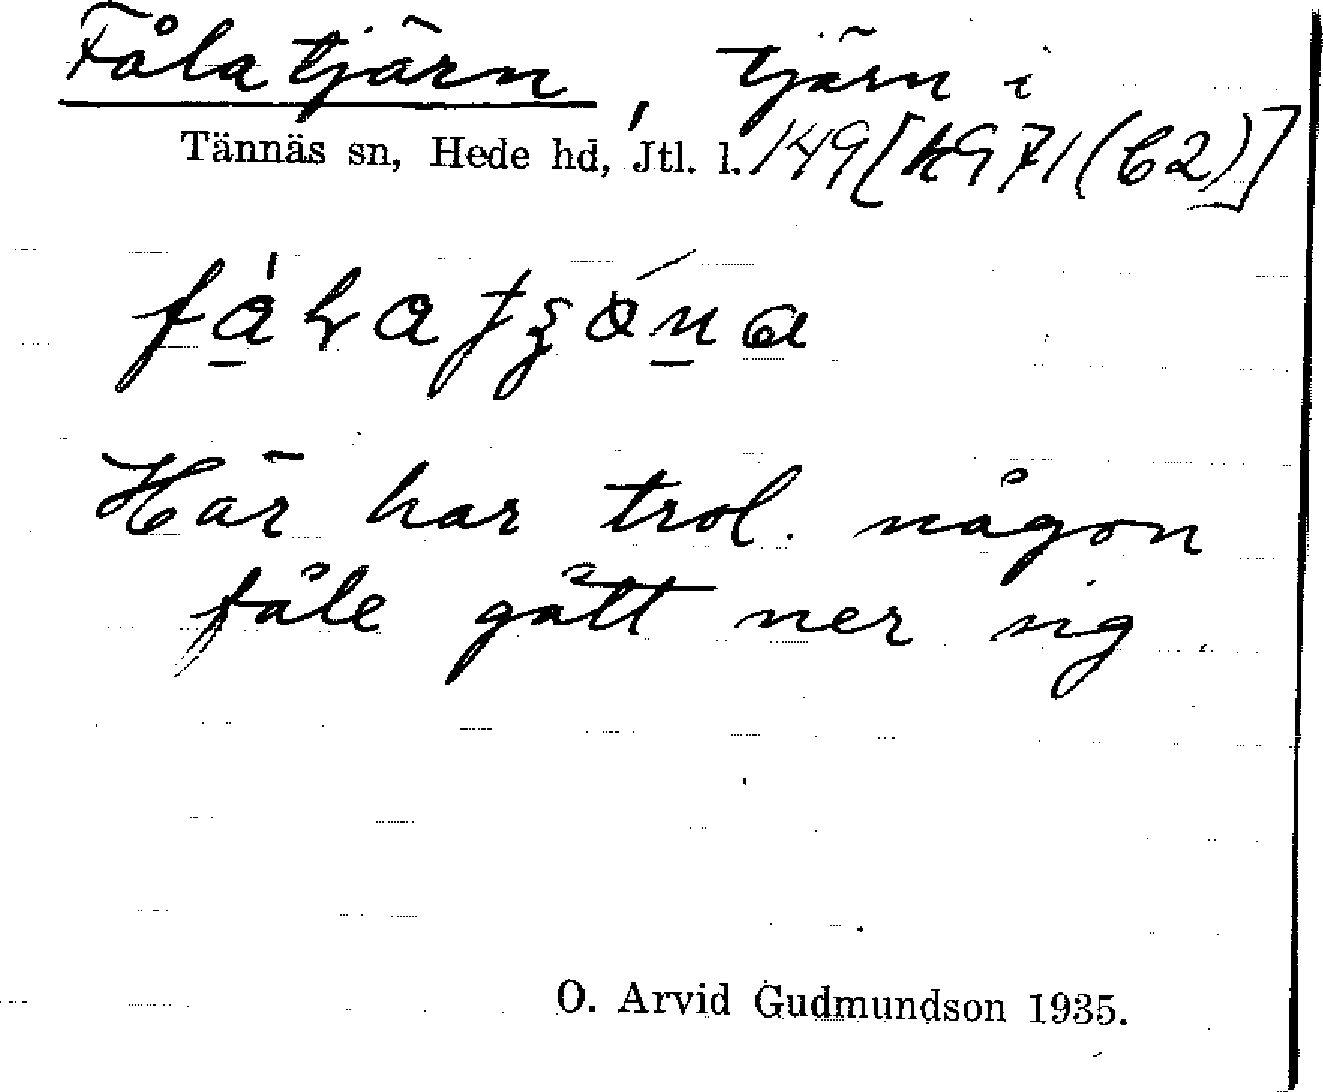 Fålatjärn, tjärn i
Tännäs sn, Hede hd, Jtl. l. 149
Här har trol. någon
fåle gått ner sig.
O. Arvid Gudmundson 1935.